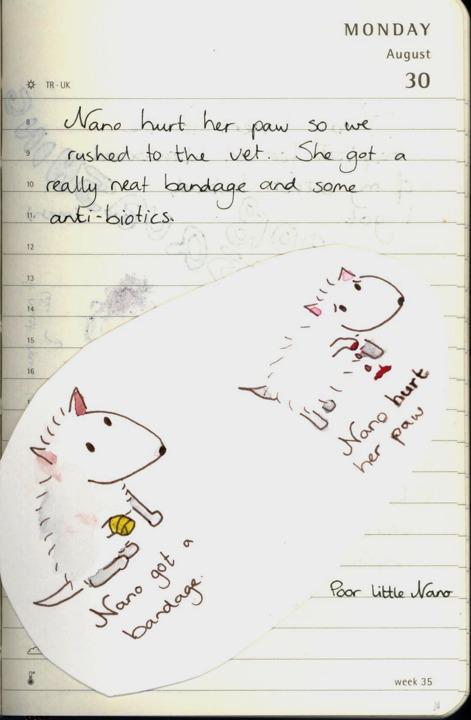 MONDAY
August
30
TR - UK
Nano hurt her paw so we
8
rushed to the vet. She got a
9
really neat bandage and some
10
anti-biotics.
11
12
13
14
15
16
Nano hurt
her paw
Nano got a
bandage.
Poor little Nano
week 35